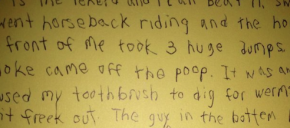 is the
went horseback riding and the ho
front of me took 3 huge dumps
oke came off the poop. It was an
used my toothbrush to dig for worm
ot freek out. The guy in the bottem